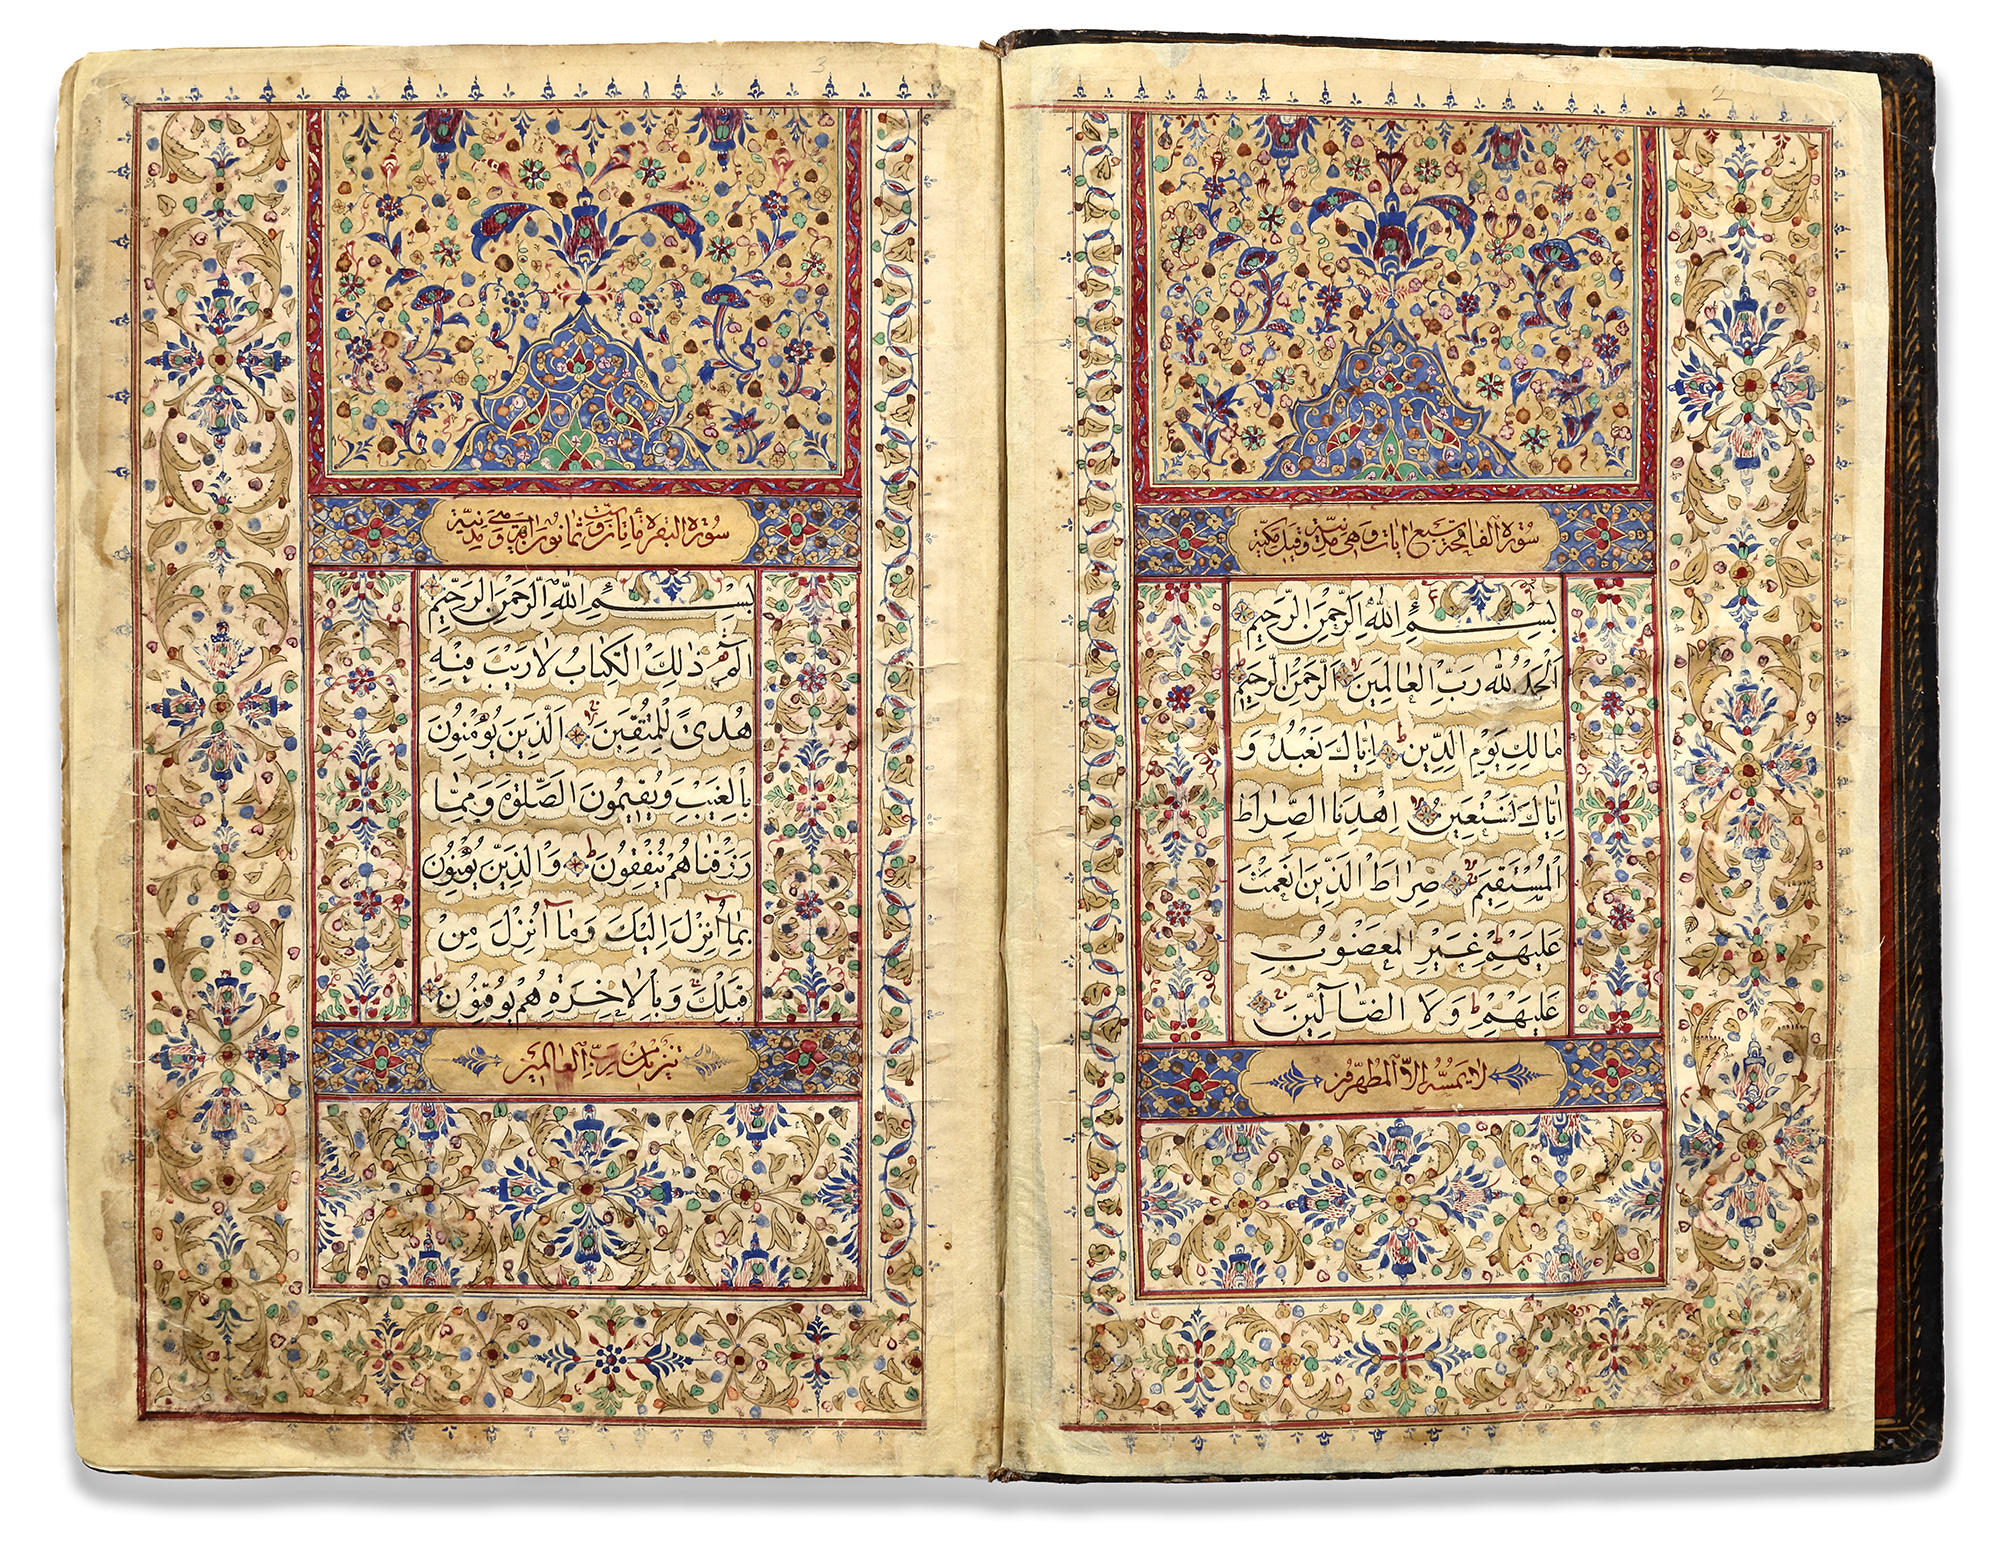 سورة الفاتحة سبع ايات وهي مدنية وقيل مكية
بِسْمِ اللَّهِ الرَّحْمٰنِ الرَّحِيمِ
اَلْحَمْدُ لِلَّهِ رَبِّ الْعَالَمِينَ الرَّحْمٰنِ الرَّحِيمِ
مَالِكِ يَوْمِ الدِّينِ اِيَّاكَ نَعْبُدُ وَ
اِيَّاكَ نَسْتَعِينُ اِهْدِنَا الصِّرَاطَ
الْمُسْتَقِيمَ صِرَاطَ الَّذِينَ اَنْعَمْتَ
عَلَيْهِمْ غَيْرِ الْمَغْضُوبِ
عَلَيْهِمْ وَلَا الضَّآلِّينَ
لا يمسه الا المطهرون
سورة البقرة مأتان وست وثمانون اية وهي مدنية
بِسْمِ اللَّهِ الرَّحْمٰنِ الرَّحِيمِ
الٓمٓ ذٰلِكَ الْكِتَابُ لَا رَيْبَ فِيهِ
هُدًى لِلْمُتَّقِينَ اَلَّذِينَ يُؤْمِنُونَ
بِالْغَيْبِ وَيُقِيمُونَ الصَّلٰوةَ وَمِمَّا
رَزَقْنَاهُمْ يُنْفِقُونَ وَالَّذِينَ يُؤْمِنُونَ
بِمَآ اُنْزِلَ اِلَيْكَ وَمَآ اُنْزِلَ مِنْ
قَبْلِكَ وَبِالْاٰخِرَةِ هُمْ يُوقِنُونَ
تنزيل من رب العالمين